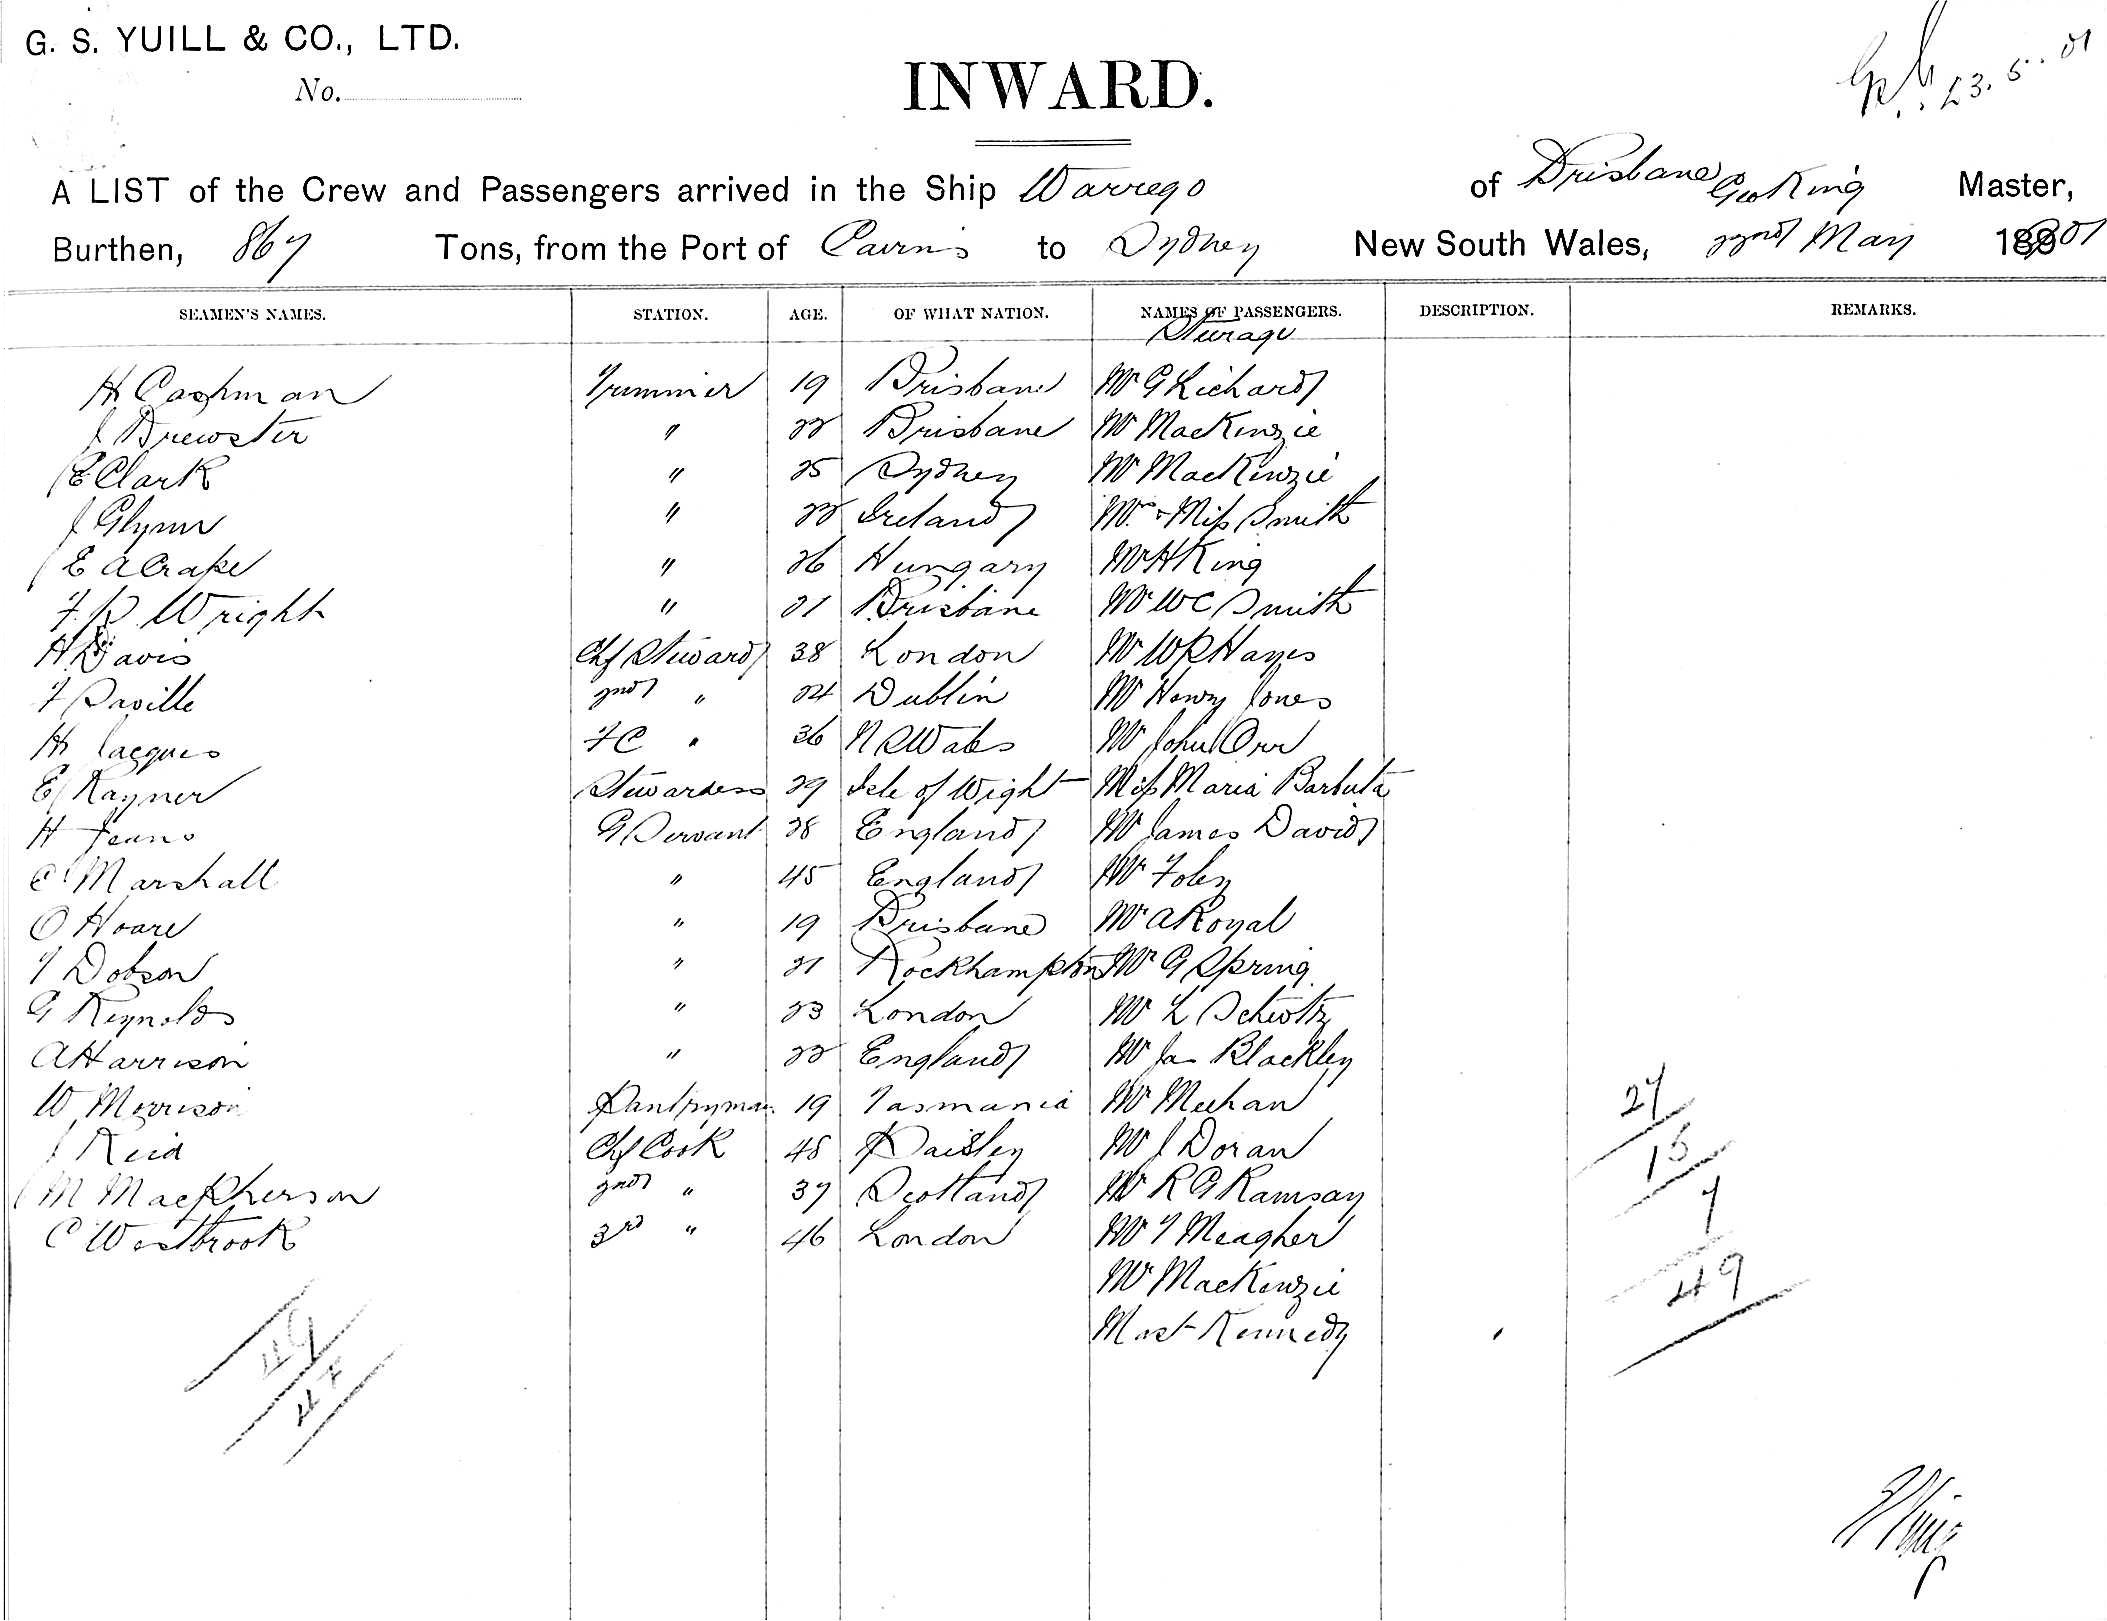 G. S. YUILL & CO., LTD.
No.
23. 5. 01
INWARD.
A LIST of the Crew and Passengers arrived in the Ship Warrego of Brisbane Geo King Master,
Burthen, 867 Tons, from the Port of Cairns to Sydney New South Wales, 22nd May 1901
SEAMEN'S NAMES. STATION. AGE. OF WHAT NATION. NAMES OF PASSENGERS. DESCRIPTION. REMARKS.
Steerage
H Cashman Trimmer 19 Brisbane Mr G Richards
J Brewster " 22 Brisbane Mr MacKenzie
E Clark " 25 Sydney Mr MacKenzie
J Glynn " 22 Ireland Mrs & Miss Smith
E A Crake " 26 Hungary Mr H King
F R Wright " 21 Brisbane Mr W C Smith
H Davis Chf Steward 38 London Mr W R Hayes
F Saville 2nd " 24 Dublin Mr Henry Jones
H Jacques FC " 36 N S Wales Mr John Orr
E Rayner Stewardess 29 Isle of Wight Miss Maria Barbuta
H Jeans G Servant 28 England Mr James David
C Marshall " 45 England Mr Foley
O Hoare " 19 Brisbane Mr A Royal
T Dobson " 21 Rockhampton Mr G Spring
G Reynolds " 23 London Mr L
A Harrison " 22 England Mr Jas Blackley
W Morrison Pantryman 19 Tasmania Mr Meehan
J Reid Chf Cook 48 Paisley Mr J Doran
M MacPherson 2nd " 37 Scotland Mr R G Ramsay
C Westbrook 3rd " 46 London Mr T Meagher
Mr MacKenzie
Mast Kennedy
27
15
7
49
49